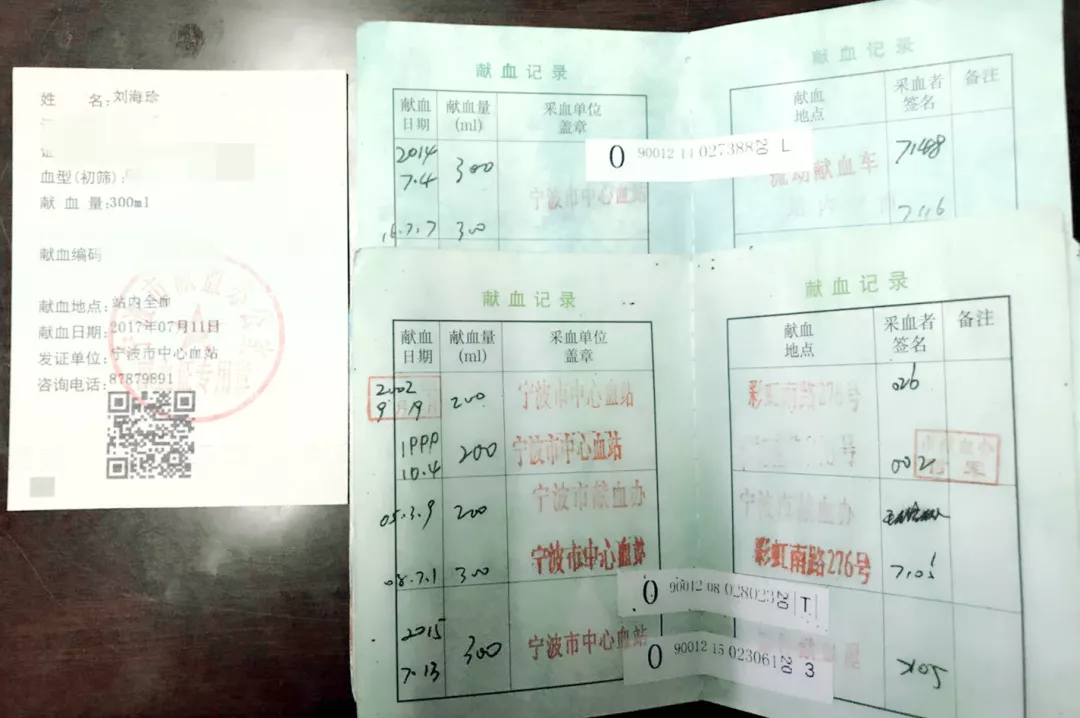 姓 名:刘海珍
血型(初筛):
献 血 量:300ml
献血编码
献血地点:站内全血
献血日期:2017年07月11日
发证单位:宁波市中心血站
咨询电话:87879891
献血记录
献血日期 献血量(ml) 采血单位盖章
2014 7.4 300 宁波市中心血站
16.7.7 300
献血记录
献血地点 采血者签名 备注
流动献血车
O 90012 14 027388 20 L
献血记录
献血日期 献血量(ml) 采血单位盖章
2002 9.19 200 宁波市中心血站
1999 10.4 200 宁波市中心血站
05.3.9 200 宁波市献血办
08.7.1 300 宁波市中心血站
2015 7.13 300 宁波市中心血站
献血记录
献血地点 采血者签名 备注
彩虹南路276号 026
002
宁波市献血办
彩虹南路276号 7.05
O 90012 08 028023 20 T
O 90012 15 023061 20 3
705